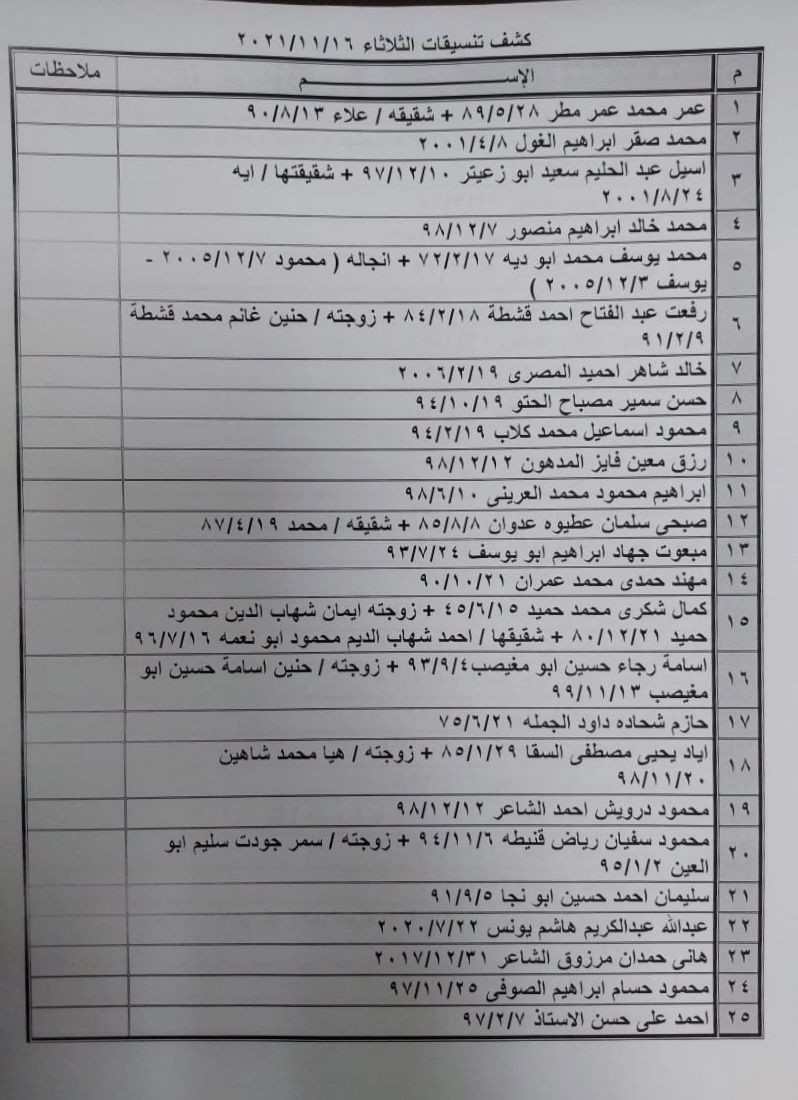 كشف تنسيقات الثلاثاء ٢٠٢١/١١/١٦
م الإســــــــم ملاحظات
١ عمر محمد عمر مطر ٨٩/٥/٢٨ + شقيقه / علاء ٩٠/٨/١٣
٢ محمد صقر ابراهيم الغول ٢٠٠١/٤/٨
٣ اسيل عبد الحليم سعيد ابو زعيتر ٩٧/١٢/١٠ + شقيقتها / ايه
٢٠٠١/٨/٢٤
٤ محمد خالد ابراهيم منصور ٩٨/١٢/٧
٥ محمد يوسف محمد ابو ديه ٧٢/٢/١٧ + انجاله ( محمود ٢٠٠٥/١٢/٧ -
يوسف ٢٠٠٥/١٢/٣ )
٦ رفعت عبد الفتاح احمد قشطة ٨٤/٢/١٨ + زوجته / حنين غانم محمد قشطة
٩١/٢/٩
٧ خالد شاهر احميد المصرى ٢٠٠٦/٢/١٩
٨ حسن سمير مصباح الحتو ٩٤/١٠/١٩
٩ محمود اسماعيل محمد كلاب ٩٤/٢/١٩
١٠ رزق معين فايز المدهون ٩٨/١٢/١٢
١١ ابراهيم محمود محمد العرينى ٩٨/٦/١٠
١٢ صبحى سلمان عطيوه عدوان ٨٥/٨/٨ + شقيقه / محمد ٨٧/٤/١٩
١٣ مبعوت جهاد ابراهيم ابو يوسف ٩٣/٧/٢٤
١٤ مهند حمدى محمد عمران ٩٠/١٠/٢١
١٥ كمال شكرى محمد حميد ٤٥/٦/١٥ + زوجته ايمان شهاب الدين محمود
حميد ٨٠/١٢/٢١ + شقيقها / احمد شهاب الديم محمود ابو نعمه ٩٦/٧/١٦
١٦ اسامة رجاء حسين ابو مغيصب٩٣/٩/٤ + زوجته / حنين اسامة حسين ابو
مغيصب ٩٩/١١/١٣
١٧ حازم شحاده داود الجمله ٧٥/٦/٢١
١٨ اياد يحيى مصطفى السقا ٨٥/١/٢٩ + زوجته / هيا محمد شاهين
٩٨/١١/٢٠
١٩ محمود درويش احمد الشاعر ٩٨/١٢/١٢
٢٠ محمود سفيان رياض قنيطه ٩٤/١١/٦ + زوجته / سمر جودت سليم ابو
العين ٩٥/١/٢
٢١ سليمان احمد حسين ابو نجا ٩١/٩/٥
٢٢ عبدالله عبدالكريم هاشم يونس ٢٠٢٠/٧/٢٢
٢٣ هانى حمدان مرزوق الشاعر ٢٠١٧/١٢/٣١
٢٤ محمود حسام ابراهيم الصوفى ٩٧/١١/٢٥
٢٥ احمد على حسن الاستاذ ٩٧/٢/٧